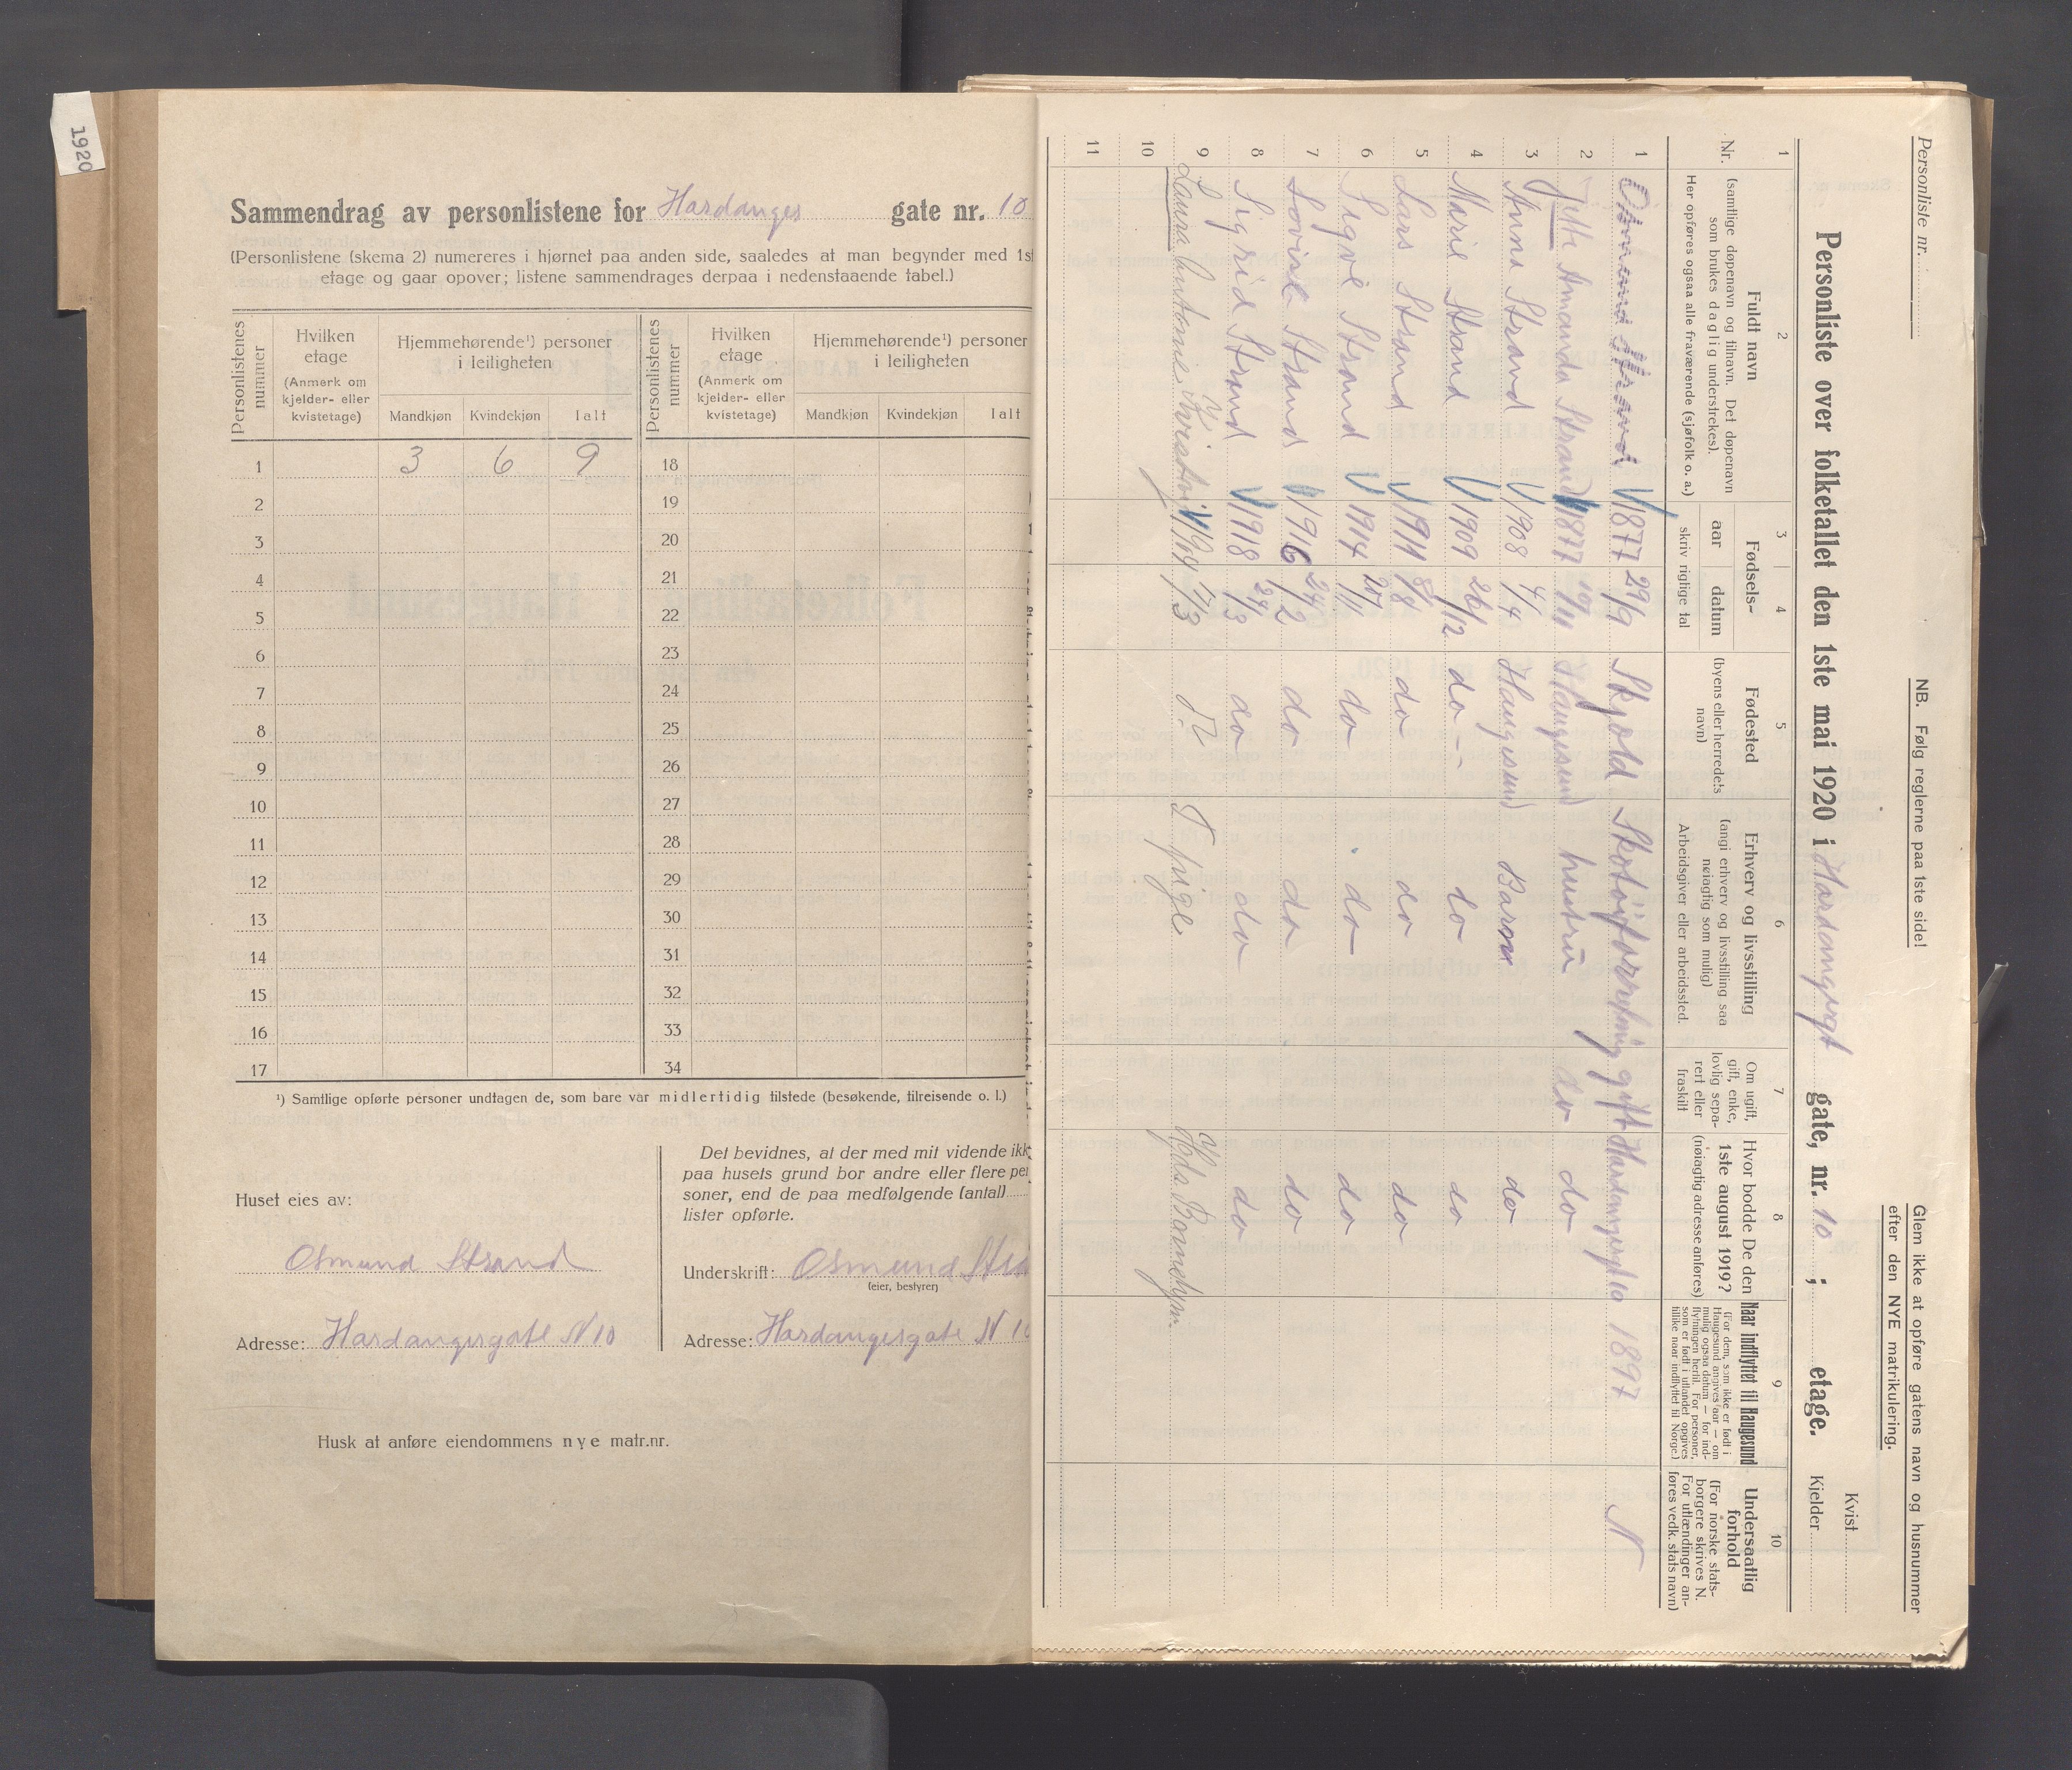 1920
Sammendrag av personlistene for Hardanges gate nr. 10
(Personlistene (skema 2) numereres i hjørnet paa anden side, saaledes at man begynder med 1st
etage og gaar opover; listene sammendrages derpaa i nedenstaaende tabel.)
Personlistenes nummer
Hvilken etage (Anmerk om kjelder- eller kvistetage)
Hjemmehørende¹) personer i leiligheten
Mandkjøn Kvindekjøn Ialt
Personlistenes nummer
Hvilken etage (Anmerk om kjelder- eller kvistetage)
Hjemmehørende¹) personer i leiligheten
Mandkjøn Kvindekjøn Ialt
1 3 6 9 18
2 19
3 20
4 21
5 22
6 23
7 24
8 25
9 26
10 27
11 28
12 29
13 30
14 31
15 32
16 33
17 34
¹) Samtlige opførte personer undtagen de, som bare var midlertidig tilstede (besøkende, tilreisende o. l.)
Huset eies av:
Osmund Strand
Adresse: Hardangergate N 10
Det bevidnes, at der med mit vidende ikk
paa husets grund bor andre eller flere per
soner, end de paa medfølgende (antal)
lister opførte.
Underskrift: Osmund Stra
(eier, bestyrer)
Adresse: Hardangergate N 10
Husk at anføre eiendommens nye matr.nr.
Personliste nr.
NB. Følg reglerne paa 1ste side!
Glem ikke at opføre gatens navn og husnummer
efter den NYE matrikulering.
Personliste over folketallet den 1ste mai 1920 i Hardangergt gate, nr. 10 ; etage.
Kvist
Kjelder
1 2 3 4 5 6 7 8 9 10
Nr.
Fuldt navn
(samtlige døpenavn og tilnavn. Det døpenavn
som brukes daglig understrekes).
Her opføres ogsaa alle fraværende (sjøfolk o. a.)
Fødsels-
aar datum
skriv rigtige tal
Fødested
(byens eller herredets
navn)
Erhverv og livsstilling
(angi erhverv og livsstilling saa
nøiagtig som mulig)
Arbeidsgiver eller arbeidssted.
Om ugift,
gift, enke,
lovlig sepa-
rert eller
fraskilt
Hvor bodde De den
1ste august 1919?
(nøiagtig adresse anføres)
Naar indflyttet til Haugesund
(For dem, som ikke er født i
Haugesund angives aar — om
mulig ogsaa datum — for ind-
flytningen hertil. For personer,
som er født i utlandet opgives
tillike naar indflyttet til Norge.)
Undersaatlig
forhold
(For norske stats-
borgere skrives N.
For utlændinger an-
føres vedk. stats navn)
1 Osmund Strand 1877 29/9 Skjold Skotøiforretning gift Hardangergt 10 1897 N
2 Jette Amanda Strand 1877 10/11 Haugesund hustru do do
3 Anna Strand 1908 4/4 Haugesund Barn do
4 Marie Strand 1909 26/12 do do do
5 Lars Strand 1911 8/8 do do do
6 Sigve Strand 1914 20/11 do do do
7 Lovise Strand 1916 24/2 do do do
8 Sigrid Strand 1918 24/3 do do do
9 Laura Antonie 1/3 pige
10
11